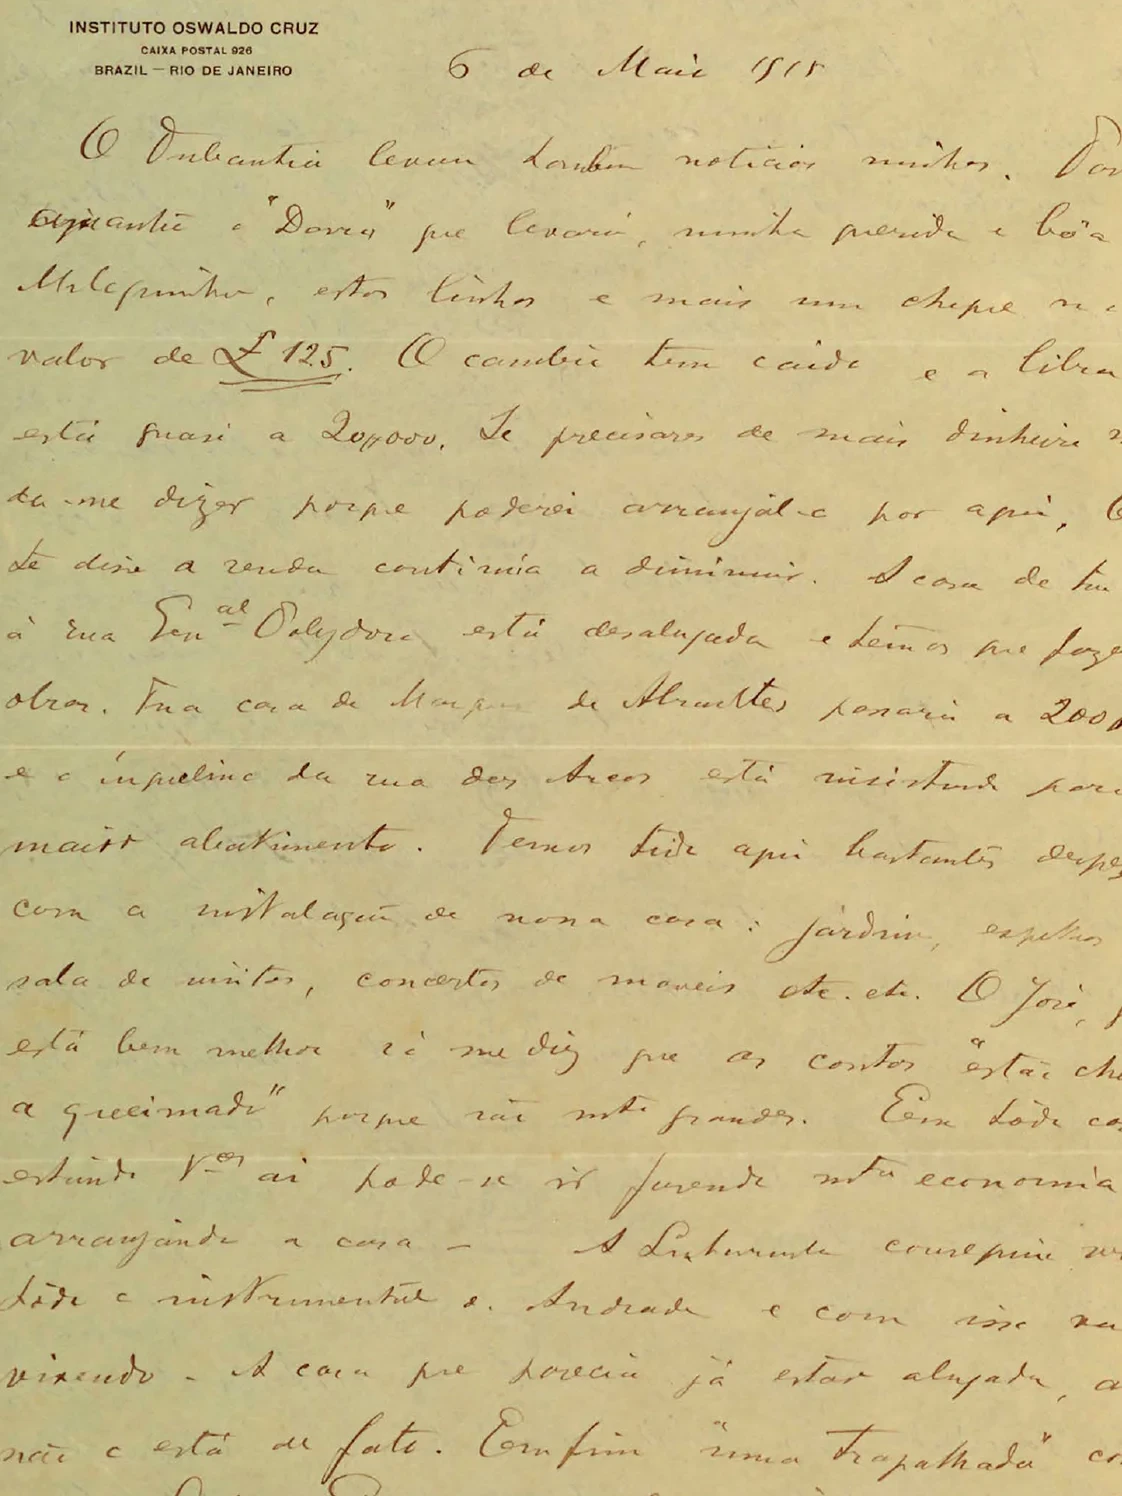 INSTITUTO OSWALDO CRUZ
CAIXA POSTAL 926
BRAZIL — RIO DE JANEIRO
6 de Maio 1915
O Tubantia levou tambem noticias minhas. Por
emquanto é "Darro" que levará, minha querida e bôa
Miloquinha, estas linhas e mais um cheque no
valor de £ 125. O cambio tem caido e a libra
está quasi a 20$000. Se precisares de mais dinheiro
da-me dizer porque poderei arranjal-o por aqui.
te disse a renda continúa a diminuir. A casa de
á rua Genal Polydoro está desalugada e temos que faze
obras. Tua casa de Marquez de Abrantes passará a 200
e o inquilino da rua dos Arcos está insistindo para
maior abatimento. Temos tido aqui bastantes
com a installação de nossa casa: jardim, espelhos
sala de visitas, concertos de moveis etc. etc. O José,
está bem melhor já me diz que as contas "estão
a queimado" porque são mto grandes. Em todo
estando Vces ai pode-se ir fazendo mta economia
arranjando a casa — A conseguiu
todo o instrumental do Andrade e com isso
vivendo - A casa que parecia já estar alugada,
não o está de fato. Emfim "uma trapalhada"